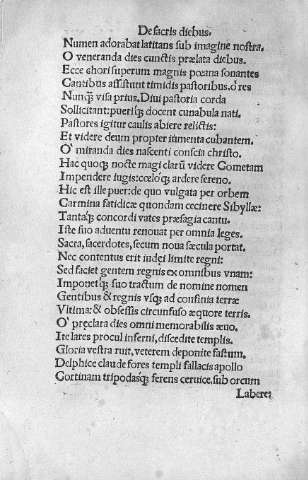 De sacris diebus.
Numen adorabat latitans sub imagine nostra.
O veneranda dies cunctis prælata diebus.
Ecce chori superum magnis pœana sonantes
Cantibus assistunt timidis pastoribus. ô res
Nunqȝ visa prius. Diui pastoria corda
Sollicitant: puerisqȝ docent cunabula nati.
Pastores igitur caulis abiere relictis:
Et videre deum propter iumenta cubantem.
O' miranda dies nascenti conscia christo.
Hac quoqȝ nocte magi clarũ videre Cometam
Impendere iugis: cœloqȝ ardere sereno.
Hic est ille puer: de quo vulgata per orbem
Carmina fatidicæ quondam cecinere Sibyllæ:
Tantaqȝ concordi vates præsagia cantu.
Iste suo aduentu renouat per omnia leges.
Sacra, sacerdotes, secum noua sæcula portat.
Nec contentus erit iudęi limite regni:
Sed faciet gentem regnis ex omnibus vnam:
Imponetqȝ suo tractum de nomine nomen
Gentibus & regnis vsqȝ ad confinia terræ
Vltima: & obsessis circunfuso æquore terris.
O' pręclara dies omni memorabilis æuo.
Ite lares procul inferni, discedite templis.
Gloria vestra ruit, veterem deponite fastum.
Delphice claude fores templi fallacis apollo
Cortinam tripodasqȝ ferens ceruice, sub orcum
Labere: